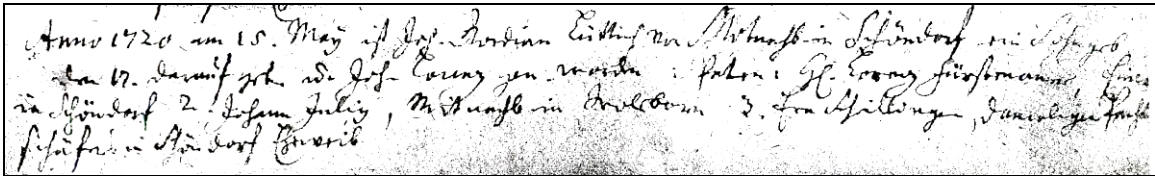 Anno 1720 am 15. May ist Joh. Gordian Lüttich von Mitnachb. in Schöndorf ein Sohn geb
den 17. darauf get. u. Joh. Lorenz gen. worden : Paten: 1. H. Lorenz Fürstenauer,
in Schöndorf 2. Johann Julig, Mittnachb. in Wolsborn 3. Eva Schillingen, damaliger Pacht
schäfers in Schöndorf Eheweib